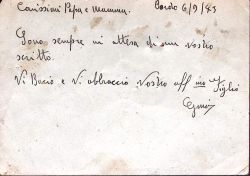 Carissimi Papa e Mamma. Bordo 6/9/43
Sono sempre in attesa di un vostro
scritto.
Vi Bacio e Vi abbraccio Vostro aff mo Figlio